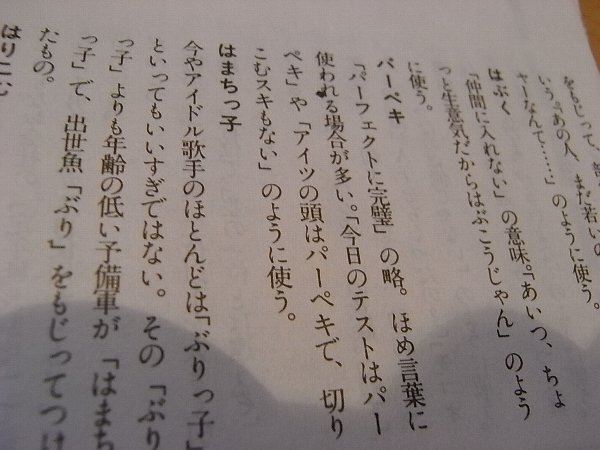 をもじって、
いう。「あの人、まだ若いの
ャーなんて……」のように使う。
はぶく
「仲間に入れない」の意味。「あいつ、ちょ
っと生意気だからはぶこうじゃん」のよう
に使う。
パーペキ
「パーフェクトに完璧」の略。ほめ言葉に
使われる場合が多い。「今日のテストはパー
ペキ」や「アイツの頭はパーペキで、切り
こむスキもない」のように使う。
はまちっ子
今やアイドル歌手のほとんどは「ぶりっ子」
といってもいいすぎではない。その「ぶり
っ子」よりも年齢の低い予備軍が「はまち
っ子」で、出世魚「ぶり」をもじってつけ
たもの。
はりこむ